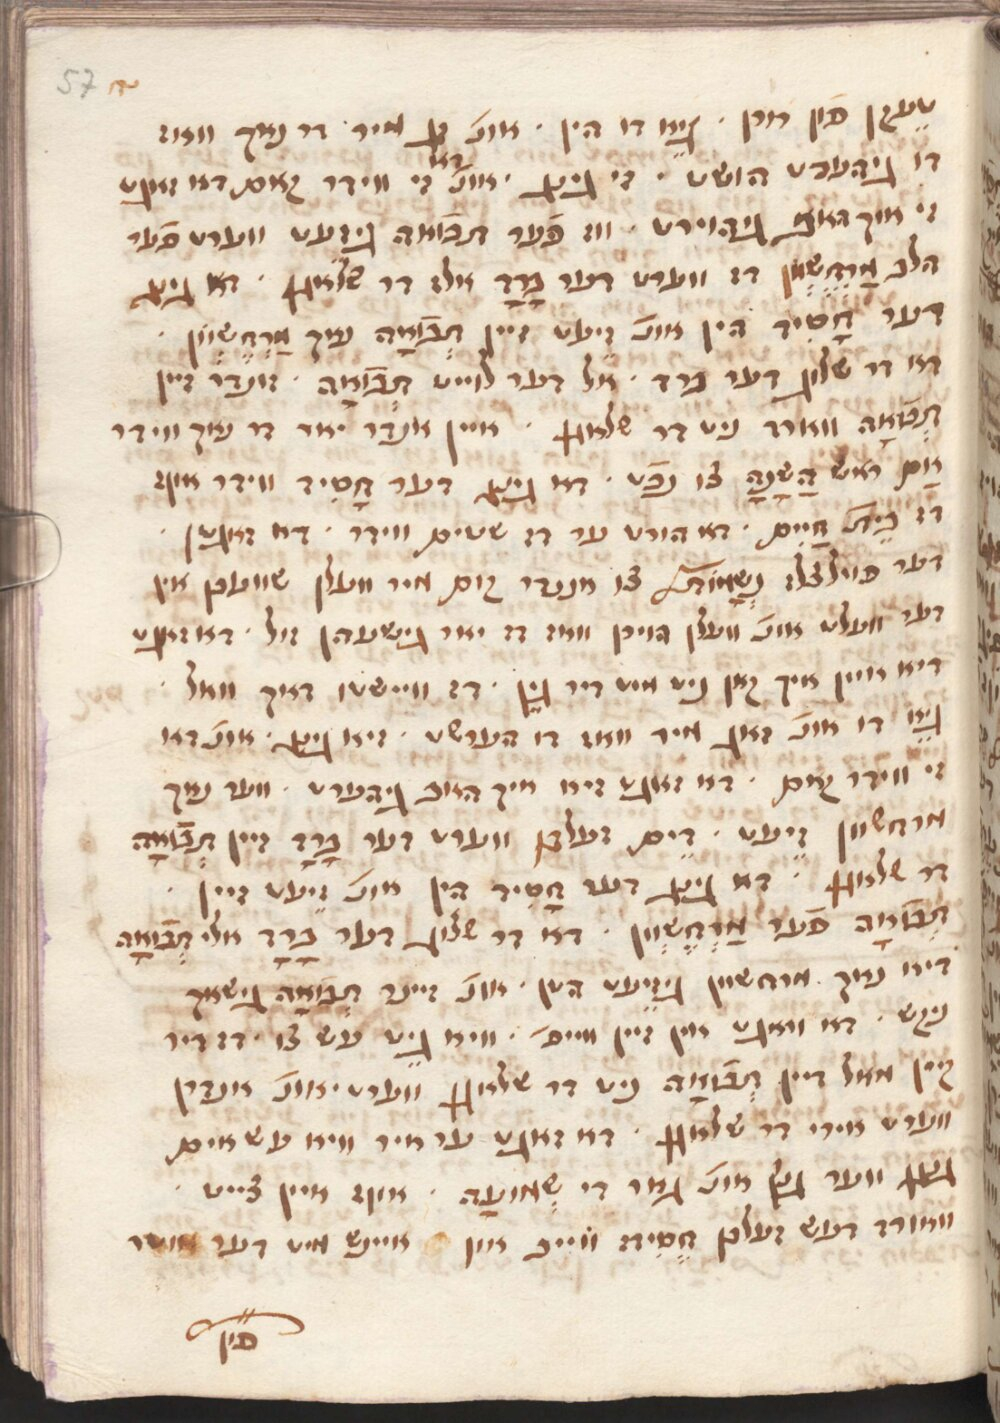 57
שעגין פֿון רורן · גיא דו הין · אונ' זג מיר דר נאך וואז
דו גיהערט הושט · זי גינג · אונ' דא זי ווידר קאם דא זאגט
זי איך האב גיהוירט · ווז פֿער תבואה גיזעט ווערט פֿער
הלב מַרְחֶשְׁוָן דז ווערט דער בָּרָד אלז דר שלאגן · דא גינג
דער חָסִיד הין אונ' זייעט זיין תְבוּאָה נוך מַרְחֶשְׁוָן ·
דא דר שלוג דער ברד · אל דער לוייט תְבוּאָה · זונדר זיין
תְבוּאָה ווארד ניט דר שלאגן · איין אנדר יאר דר נאך ווידר
אַם ראש הַשָנָה צו נכט · דא גינג דער חָסִיד ווידר אויף
דז בֵּית חַיִים · דא הורט ער דז שטים ווידר · דא זאגטן ·
דער צווילצל נְשָׁמוֹת צו אנדר קום מיר וועלן שוועבן אין
דער וועלט אונ' וועלן הוירן וואז דז יאר גישעהן זול · דא זאגט
דיא איין איך קאן ניט מיט דיר גין · דז ווייששטו דאך וואל ·
גיא דו אונ' זאג מיר וואז דו הערשט · זיא גינג · אונ' דא
זי ווידר קאם · דא זאגט זיא איך האב גיהערט · ווער נאך
מרחשוון זייעט · דעם זעלבן ווערט דער בָּרָד זיין תְבוּאָה
דר שלאגן · דא גינג דער חָסִיד הין אונ' זייעט זיין ·
תְבוּאָה פֿער מַרְחֶשְׁוָן · דא דר שלוג דער בָּרָד אלי תְבוּאָה
דיא נאך מרחשוון גיזייעט הטן · אונ' זיינר תְבוּאָה גישאך
ניקש · דא וראגט אין זיין ווייב · וויא גיט עש צו · דז דיר
קיין מאל דיין תְבוּאָה ניט דר שלאגן ווערט · אונ' אנדרן
ווערט אירי דר שלאגן · דא זאגט ער איר וויא עש אים
גנגן ווער גנץ אונ' גאר די שְׁמוּעָה · אויף איין צייט ·
ווארד דעש זעלבן חָסִידז ווייב איין איינש מיט דער אוטר
פֿון